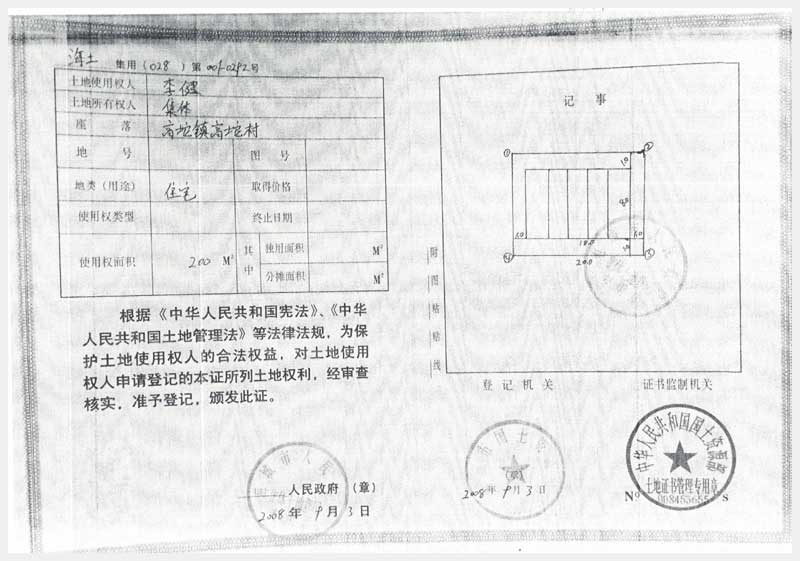 海土 集用(028)第001-0292号
土地使用权人 李健
土地所有权人 集体
座落 高坨镇高坨村
地号 图号
地类(用途) 住宅 取得价格
使用权类型 终止日期
使用权面积 200 M² 其中 独用面积 M²
分摊面积 M²
根据《中华人民共和国宪法》、《中华
人民共和国土地管理法》等法律法规,为保
护土地使用权人的合法权益,对土地使用
权人申请登记的本证所列土地权利,经审查
核实,准予登记,颁发此证。
人民政府(章)
2008年9月3日
记事
① ②
1.0
1.0 18.0 1.0
1.0
④ 20.0 ③
附图粘贴线
登记机关 证书监制机关
2008年9月3日
中华人民共和国国土资源部
土地证书管理专用章
Nº